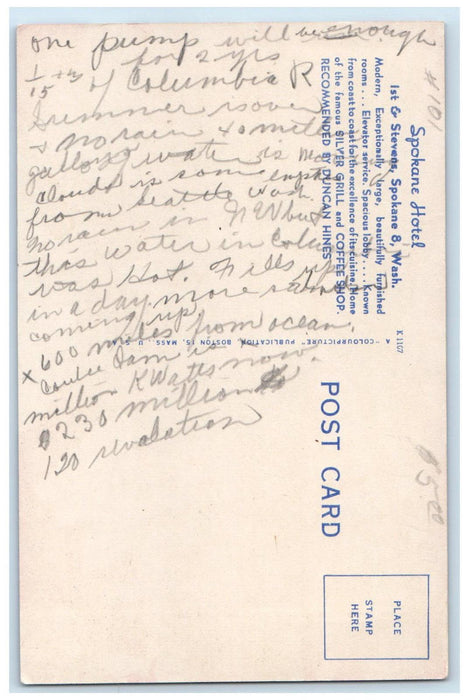 one pump will be enough
for 2 yrs
1/15 of Columbia R
Summer is over
& no rain &
gallons water is
clouds is some
from Seattle Wash.
no rain in NW but
this water in
was Hot. Fills up
in a day. more
coming up.
x 600 miles from ocean.
Coulee Dam is
million KWatts now.
230 million
120 revalation
#101
Spokane Hotel
1st & Stevens, Spokane 8, Wash.
Modern, Exceptionally large, beautifully furnished
rooms . . . Elevator service. Spacious lobby . . . . Known
from coast to coast for the excellence of its cuisine. Home
of the famous SILVER GRILL and COFFEE SHOP.
RECOMMENDED BY DUNCAN HINES
K 1107
A "COLOURPICTURE" PUBLICATION, BOSTON 15, MASS., U. S. A.
POST CARD
PLACE
STAMP
HERE